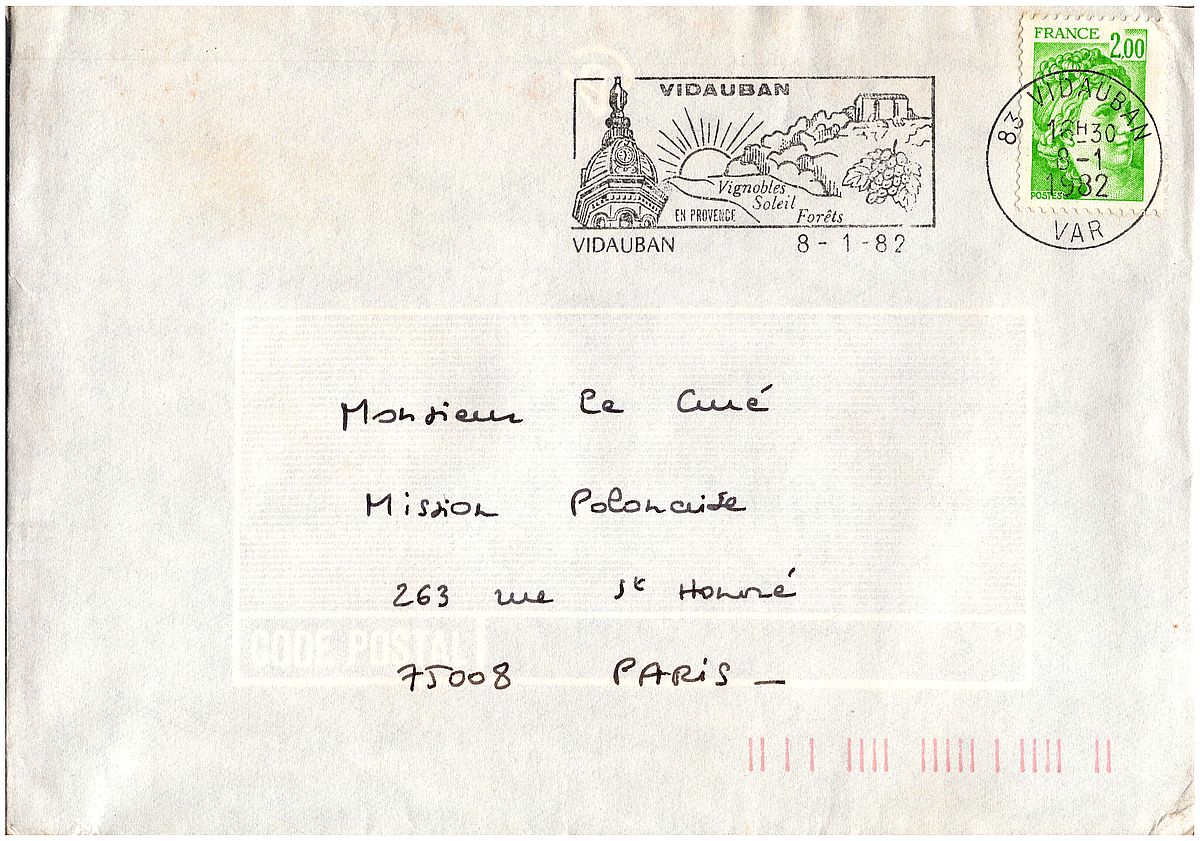 VIDAUBAN
Vignobles
Soleil
EN PROVENCE
Forêts
VIDAUBAN 8-1-82
FRANCE 2,00
83 VIDAUBAN
H30
1982
VAR
Monsieur le Curé
Mission Polonaise
263 rue St Honoré
CODE POSTAL
75008 PARIS_